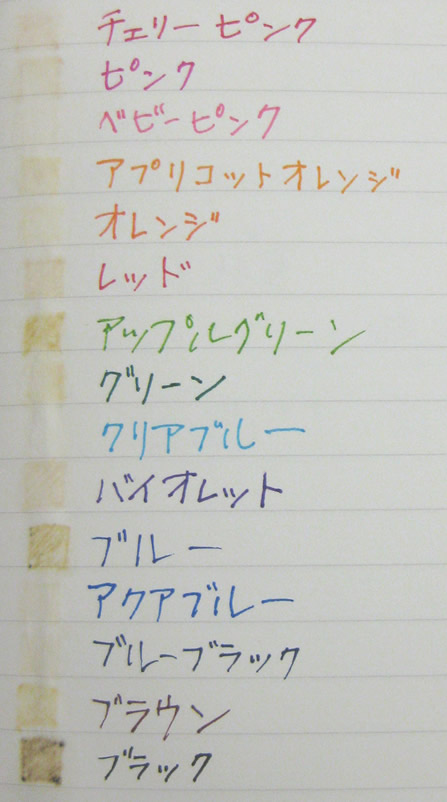 チェリーピンク
ピンク
ベビーピンク
アプリコットオレンジ
オレンジ
レッド
アップルグリーン
グリーン
クリアブルー
バイオレット
ブルー
アクアブルー
ブルーブラック
ブラウン
ブラック